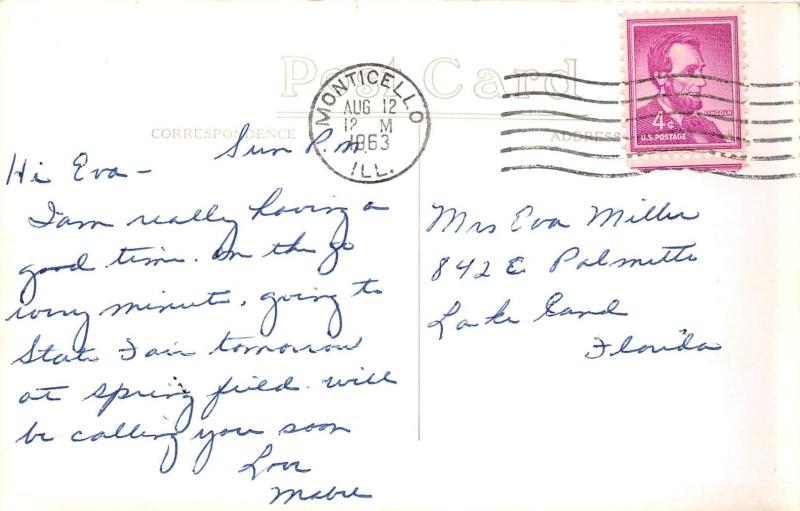 Post Card
CORRESPONDENCE
ADDRESS
MONTICELLO
AUG 12
12 M
1963
ILL.
LINCOLN
4¢
U.S. POSTAGE
Sun P.M.
Hi Eva -
I am really having a
good time. on the go
every minute. going to
State Fair tomorrow
at spring field. will
be calling you soon
Love
Mabel
Mrs Eva Miller
842 E Palmetto
Lake Land
Florida